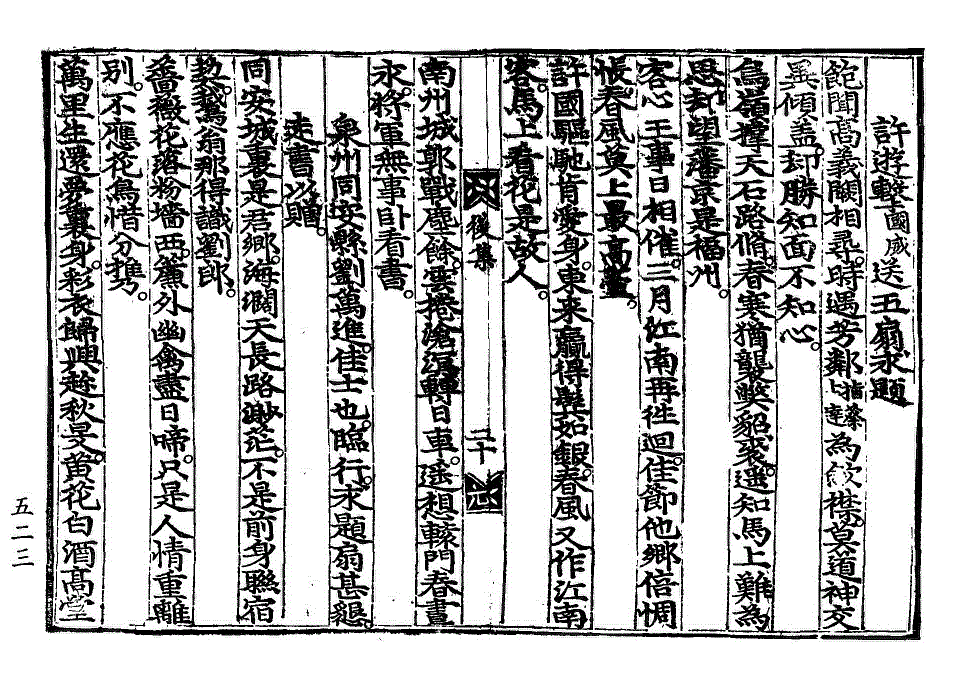 許遊擊國威送五扇求題
飽聞高義闕相尋。時遇芳鄰指蔡上達為欸襟。莫道神交
異傾盖。却勝知面不知心。
鳥嶺撐天石路脩。春寒猶襲弊貂裘。遥知馬上難為
思。却望藩京是福州。
客心王事日相催。三月江南再徃迴。佳節他鄉倍惆
悵。春風莫上最高臺。
許國驅馳肯愛身。東来贏得鬂如銀。春風又作江南
客。馬上看花是故人。
後集 二十
南州城郭戰塵餘。雲捲滄溟轉日車。遥想轅門春晝
永。將軍無事卧看書。
泉州同安縣劉萬進。佳士也。臨行。求題扇甚懇。
走書以贈。
同安城裏是君鄉。海濶天長路渺茫。不是前身聮宿
契。鵞翁那得識劉郎。
薔薇花落粉墻西。簾外幽禽盡日啼。只是人情重離
別。不應花鳥惜分携。
萬里生還夢裏身。彩衣歸興趂秋旻。黃花白酒高堂
五二三